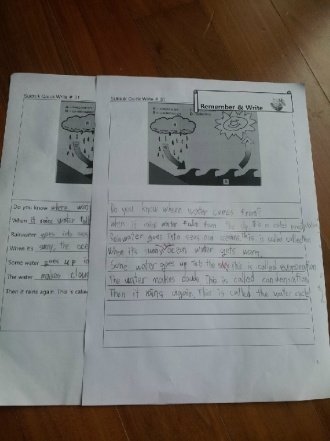 Sidekick Quick Write # 31
Do you know where
When it rains water falls
Rainwater goes into
When it's sunny, the oce
Some water goes up
The water makes clou
Then it rains again. This is called
Sidekick Quick Write # 31
Remember & Write
Do you know where water comes from?
When it rains water falls from the
Rainwater goes into seas and oceans This is called collection
When it's sunny ocean water gets warm
Some water goes up into the sky this is called evaporation
The water makes clouds This is called condensation
Then it rains again This is called the water cycle